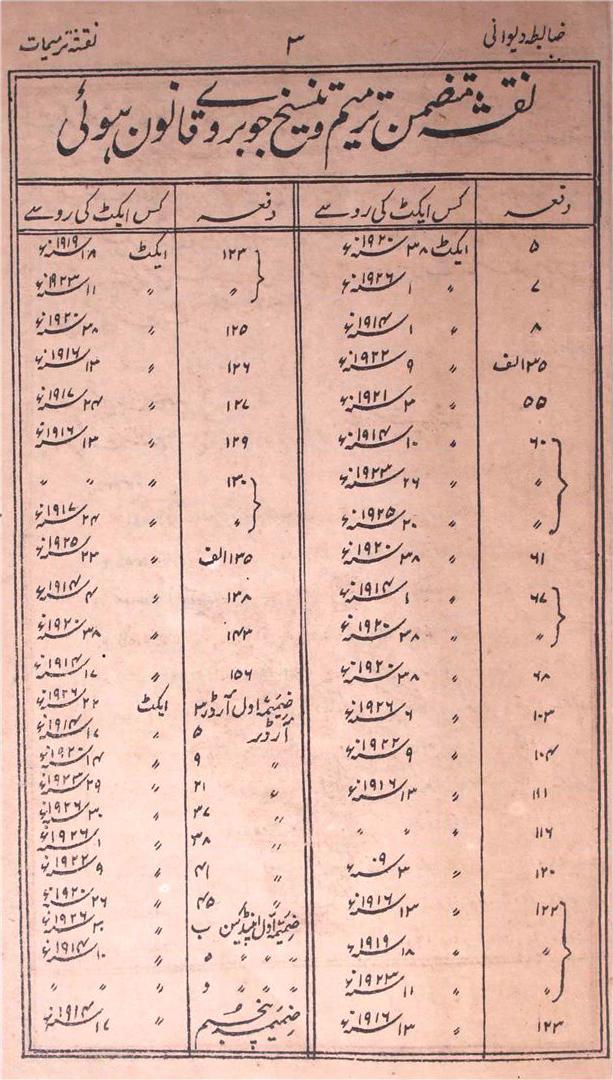 ضابطہ دیوانی ۳ نقشہ ترمیمات
نقشہ متضمن ترمیم و تنسیخ جو بروے قانون ہوئی
دفعہ کس ایکٹ کی روسے دفعہ کس ایکٹ کی روسے
۵ ایکٹ ۳۸ سنہ ۱۹۲۰ء ۱۲۳ ایکٹ ۱۸ سنہ ۱۹۱۹ء
۷ 〃 ۱ سنہ ۱۹۲۶ء 〃 〃 ۱۱ سنہ ۱۹۲۳ء
۸ 〃 ۱ سنہ ۱۹۱۴ء ۱۲۵ 〃 ۳۸ سنہ ۱۹۲۰ء
۳۵الف 〃 ۹ سنہ ۱۹۲۲ء ۱۲۶ 〃 ۱۳ سنہ ۱۹۱۶ء
۵۵ 〃 ۳ سنہ ۱۹۲۱ء ۱۲۷ 〃 ۲۴ سنہ ۱۹۱۷ء
۶۰ 〃 ۱۰ سنہ ۱۹۱۴ء ۱۲۹ 〃 ۱۳ سنہ ۱۹۱۶ء
〃 〃 ۲۶ سنہ ۱۹۲۳ء ۱۳۰ 〃 〃
〃 〃 ۲۰ سنہ ۱۹۲۵ء 〃 〃 ۲۴ سنہ ۱۹۱۷ء
۶۱ 〃 ۳۸ سنہ ۱۹۲۰ء ۱۳۵الف 〃 ۲۳ سنہ ۱۹۲۵ء
۶۷ 〃 ۱ سنہ ۱۹۱۴ء ۱۳۸ 〃 ۴ سنہ ۱۹۱۴ء
〃 〃 ۳۸ سنہ ۱۹۲۰ء ۱۴۳ 〃 ۳۸ سنہ ۱۹۲۰ء
۶۸ 〃 ۳۸ سنہ ۱۹۲۰ء ۱۵۶ 〃 ۱۷ سنہ ۱۹۱۴ء
ضمیمہ اول آرڈر ۳ ایکٹ ۲۲ سنہ ۱۹۲۶ء
۱۰۳ 〃 ۶ سنہ ۱۹۲۶ء آرڈر ۵ 〃 ۱۷ سنہ ۱۹۱۴ء
۱۰۴ 〃 ۹ سنہ ۱۹۲۲ء 〃 ۹ 〃 ۱۴ سنہ ۱۹۲۰ء
۱۱۱ 〃 ۱۳ سنہ ۱۹۱۶ء 〃 ۲۱ 〃 ۲۹ سنہ ۱۹۲۳ء
〃 ۳۷ 〃 ۳۰ سنہ ۱۹۲۶ء
۱۱۶ 〃 〃 〃 ۳۸ 〃 ۱ سنہ ۱۹۲۶ء
۱۲۰ 〃 ۳ سنہ ۰۹ء 〃 ۴۱ 〃 ۹ سنہ ۱۹۲۲ء
۱۲۲ 〃 ۱۳ سنہ ۱۹۱۶ء 〃 ۴۵ 〃 ۲۶ سنہ ۱۹۲۰ء
ضمیمہ اول اپنڈیکس ب 〃 سنہ ۱۹۲۶ء
〃 〃 ۱۸ سنہ ۱۹۱۹ء 〃 〃 ۵ 〃 ۱۰ سنہ ۱۹۱۴ء
〃 〃 ۱۱ سنہ ۱۹۲۳ء 〃 〃 و 〃 〃
۱۲۳ 〃 ۱۳ سنہ ۱۹۱۶ء ضمیمہ پنجم 〃 ۱۷ سنہ ۱۹۱۴ء